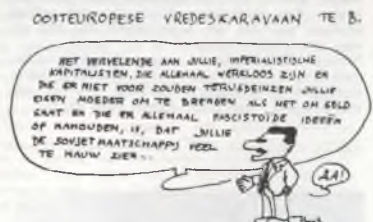 OOSTEUROPESE VREDESKARAVAAN TE B.
HET VERVELENDE AAN JULLIE, IMPERIALISTISCHE
KAPITALISTEN, DIE ALLEMAAL WERKLOOS ZIJN EN
DIE ER NIET VOOR ZOUDEN TERUGDEINZEN JULLIE
EIGEN MOEDER OM TE BRENGEN ALS HET OM GELD
GAAT EN DIE ER ALLEMAAL FASCISTOÏDE IDEEËN
OP NAHOUDEN, IS, DAT JULLIE
DE SOVJETMAATSCHAPPIJ VEEL
TE NAUW ZIEN..